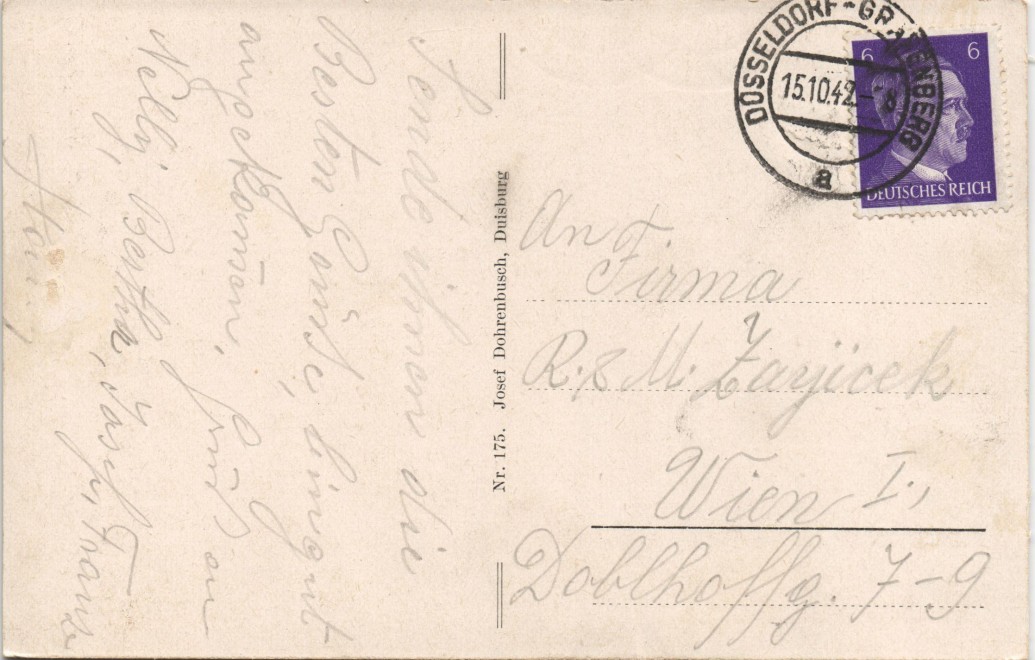 sende ihnen die
Besten Grüße, bin gut
angekommen, Gruß an
Nelly, Bertha,
Nr. 175. Josef Dohrenbusch, Duisburg
DÜSSELDORF-GRAFENBERG
15.10.42.-8
a
6 6
DEUTSCHES REICH
An F.
Firma
R. & M. Zayicek
Wien I.,
Doblhoffg. 7-9